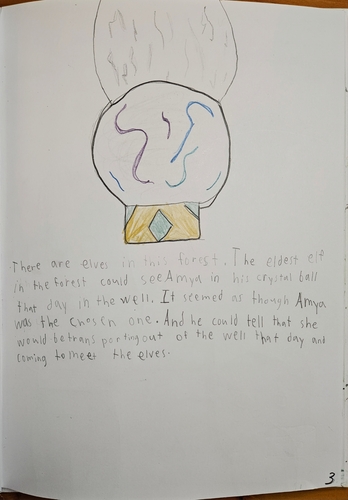 There are elves in this forest. The eldest elf
in the forest could see Amya in his crystal ball
that day in the well. It seemed as though Amya
was the chosen one. And he could tell that she
would be transporting out of the well that day and
coming to meet the elves.
3